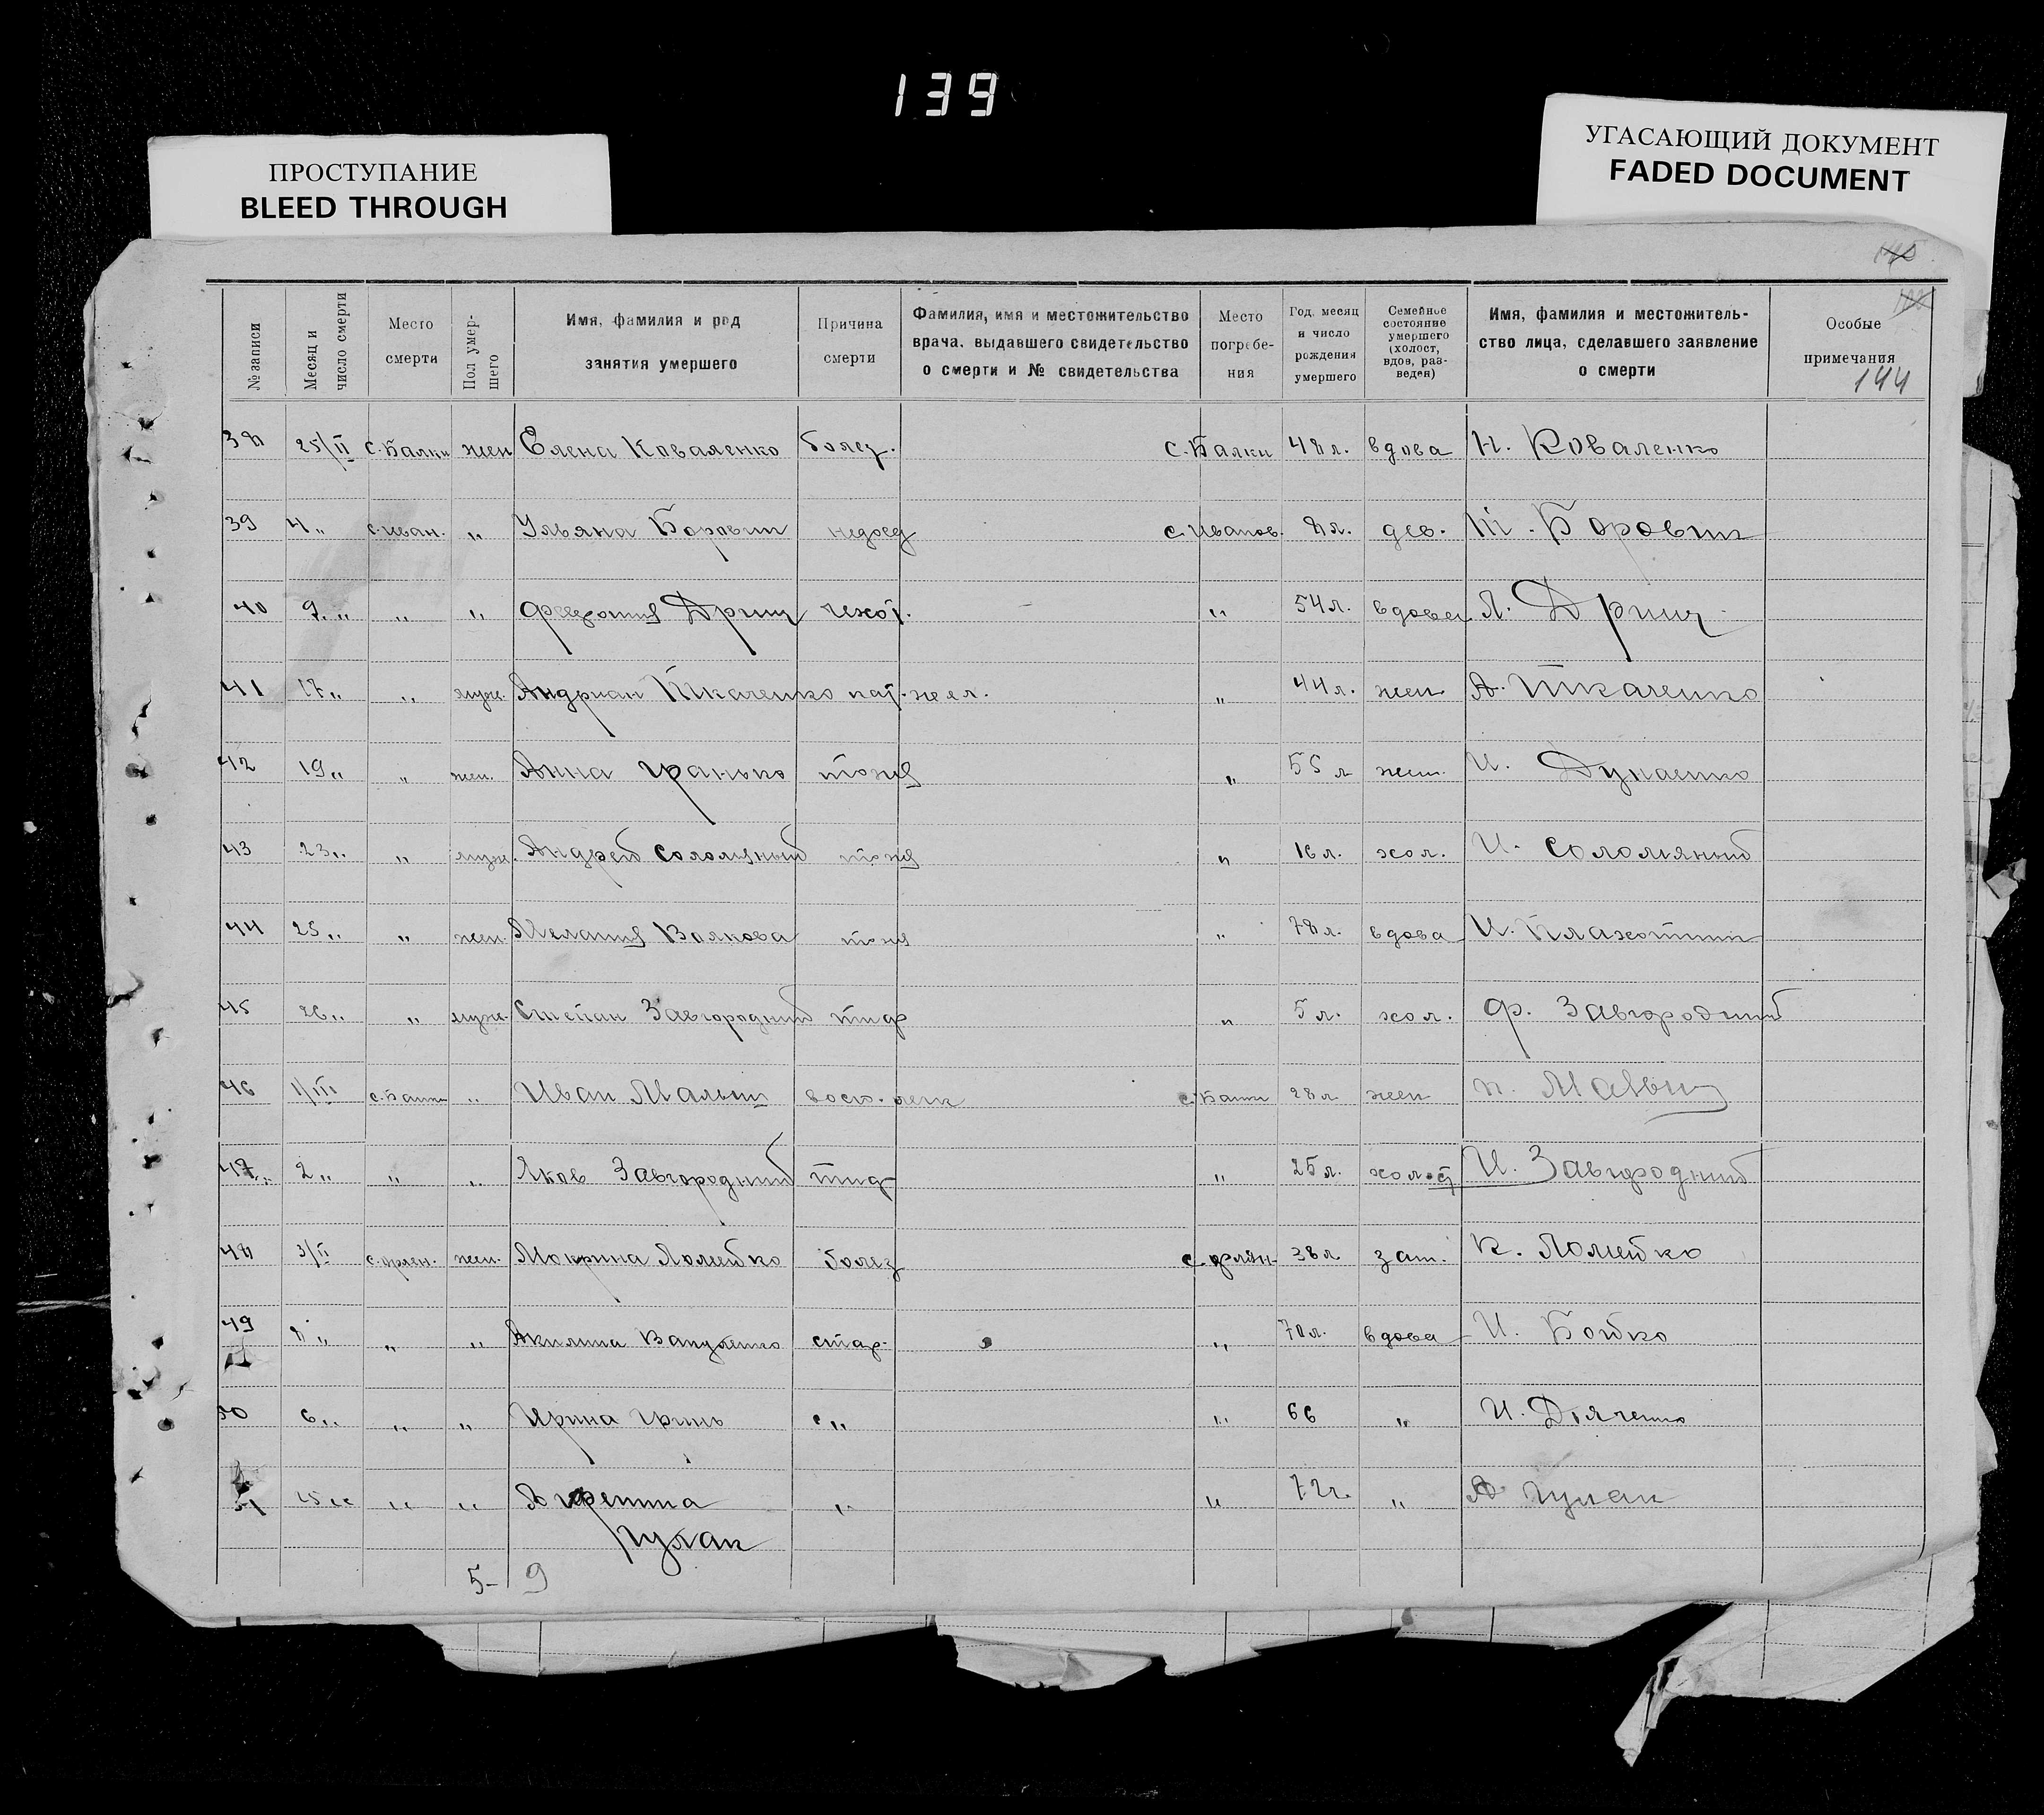 139
ПРОСТУПАНИЕ
BLEED THROUGH
УГАСАЮЩИЙ ДОКУМЕНТ
FADED DOCUMENT
№ записи | Месяц и число смерти | Место смерти | Пол умершего | Имя, фамилия и род занятия умершего | Причина смерти | Фамилия, имя и местожительство врача, выдавшего свидетельство о смерти и № свидетельства | Место погребения | Год, месяц и число рождения умершего | Семейное состояние умершего (холост, вдов, разведен) | Имя, фамилия и местожительство лица, сделавшего заявление о смерти | Особые примечания
144
38 25/II с. Балки жен Елена Коваленко болез. с. Балки 48 л. вдова Н. Коваленко
39 4 „ с. иван. „ Ульяна Боровик недоед с. Иванов. 8 л. дев. Боровик
40 9 „ „ „ Дрищ чехот. „ 54 л. вдова Дрищ
41 17 „ „ муж. Андриан Ткаченко „ 44 л. жен А. Ткаченко
42 19 „ „ жен. Анна Гранько тоже „ 55 л жен. И. Дунаенко
43 23 „ „ муж. Андрей Соломяный тоже „ 16 л. хол. И. Соломяный
44 25 „ „ жен. Мелания Волкова тоже „ 78 л. вдова И.
45 26 „ „ муж. Степан Завгородний тиф „ 5 л. хол. Ф. Завгородний
46 1/III с. Балки „ Иван восп. легк с. Балки 28 л жен
47 „ 2 „ „ „ Яков Завгородний тиф „ 25 л. холост И. Завгородний
48 3/II с. орлян. жен. Мокрина Ломейко болез с. орлян. 38 л. зам. К. Ломейко
49 8 „ „ „ Акилина стар. „ 70 л. вдова И. Бойко
50 6 „ „ „ Ирина Гринь с „ „ 66 „ И. Дяченко
15 „ „ „ Гулак „ „ 72 г. „ А Гулак
5- 9